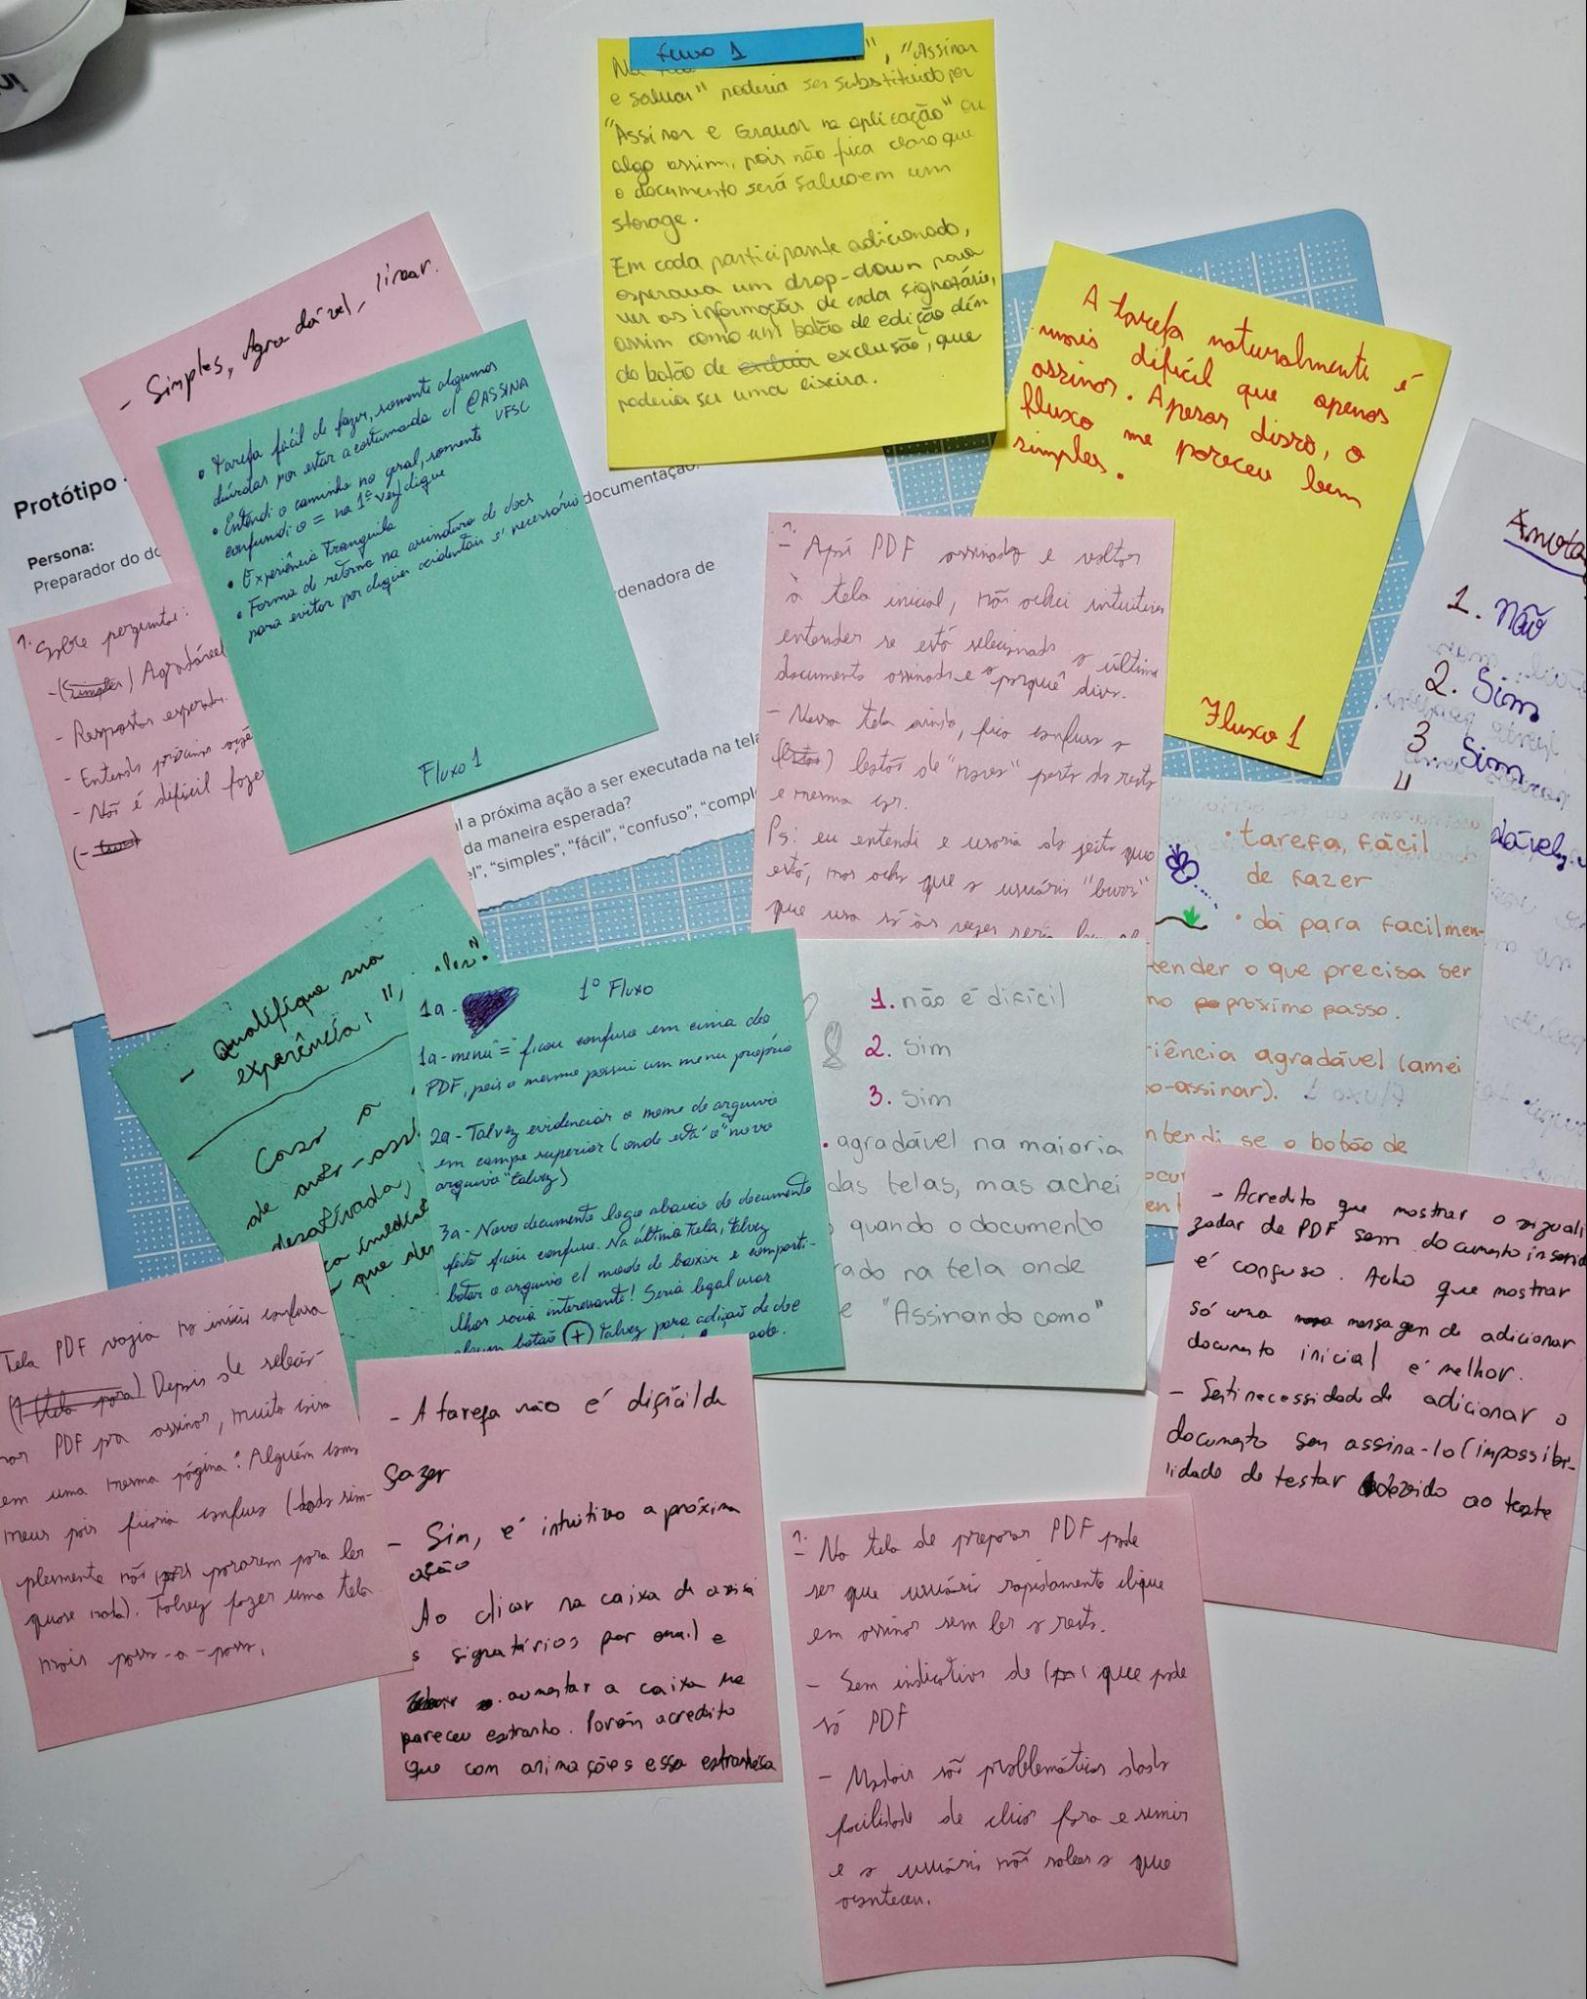 Fluxo 1
", "Assinar
e salvar" poderia ser substituído por
"Assinar e Gravar na aplicação" ou
algo assim, pois não fica claro que
o documento será salvo em um
storage.
Em cada participante adicionado,
esperava um drop-down para
ver as informações de cada signatário,
assim como um botão de edição além
do botão de exclusão, que
poderia ser uma lixeira.
- Simples, Agradável, linear.
• tarefa fácil de fazer, somente algumas
dúvidas por estar acostumada c/ @ASSINA
UFSC
• Entendi o caminho no geral, somente
confundi o = na 1ª vez
• Experiência Tranquila
• Forma de retorno na assinatura de docs
para evitar por cliques acidentais é necessário
Fluxo 1
A tarefa naturalmente é
mais difícil que apenas
assinar. Apesar disso, o
fluxo me pareceu bem
simples.
Fluxo 1
Protótipo
Persona:
Preparador do do
documentação.
rdenadora de
al a próxima ação a ser executada na tela
da maneira esperada?
el", "simples", "fácil", "confuso", "compl
1. Sobre perguntas:
- (Simples) Agradável
- Respostas
- Entendi próxima
- Não é difícil fazer
- Após PDF assinado e voltar
à tela inicial, não achei intuitivo
entender se está selecionado o último
documento assinado e o "porquê" disso.
- Nessa tela ainda, fico confuso o
botão de "novo" perto do resto
e mesma cor.
Ps: eu entendi e usaria do jeito que
está, mas acho que o usuário "burro"
que usa só às vezes seria
Anota
1. Não
2. Sim
3. Sim
dável
• tarefa fácil
de fazer
• dá para facilmen-
tender o que precisa ser
no próximo passo.
iência agradável (amei
o-assinar).
ntendi se o botão de
- Qualifique sua
experiência: "
Caso a
de auto-assi
desativada,
que
1º Fluxo
1a-
1a- menu "=" ficou confuso em cima do
PDF, pois o mesmo possui um menu próprio
2a - Talvez evidenciar o nome do arquivo
em campo superior (onde está o "novo
arquivo" talvez)
3a - Novo documento logo abaixo do documento
feito ficou confuso. Na última tela, talvez
botar o arquivo c/ modo de baixar e comparti-
lhar seria interessante! Seria legal usar
algum botão (+) talvez para adição de doc
1. não é difícil
2. Sim
3. Sim
• agradável na maioria
das telas, mas achei
quando o documento
rado na tela onde
e "Assinando como"
- Acredito que mostrar o visuali
zador de PDF sem documento inserido
é confuso. Acho que mostrar
só uma mensagem de adicionar
documento inicial é melhor.
- Senti necessidade de adicionar o
documento sem assina-lo (impossibi-
lidade de testar devido ao teste
Tela PDF vazia no início confusa
Depois de selecio-
nar PDF pra assinar, muita coisa
em uma mesma página? Alguém como
meus pais ficaria confuso (todos sim-
plesmente não pararem para ler
quase nada). Talvez fazer uma tela
mais passo-a-passo.
- A tarefa não é difícil de
fazer
- Sim, é intuitivo a próxima
ação
Ao clicar na caixa de avisa
s signatários por email e
aumentar a caixa me
pareceu estranho. Porém acredito
que com animações essa estranheza
- Na tela de preparar PDF pode
ser que usuário rapidamente clique
em assinar sem ler o resto.
- Sem indicativo de que pode
só PDF
- Modais são problemáticos dada
facilidade de clicar fora e sumir
e o usuário não saber o que
aconteceu.